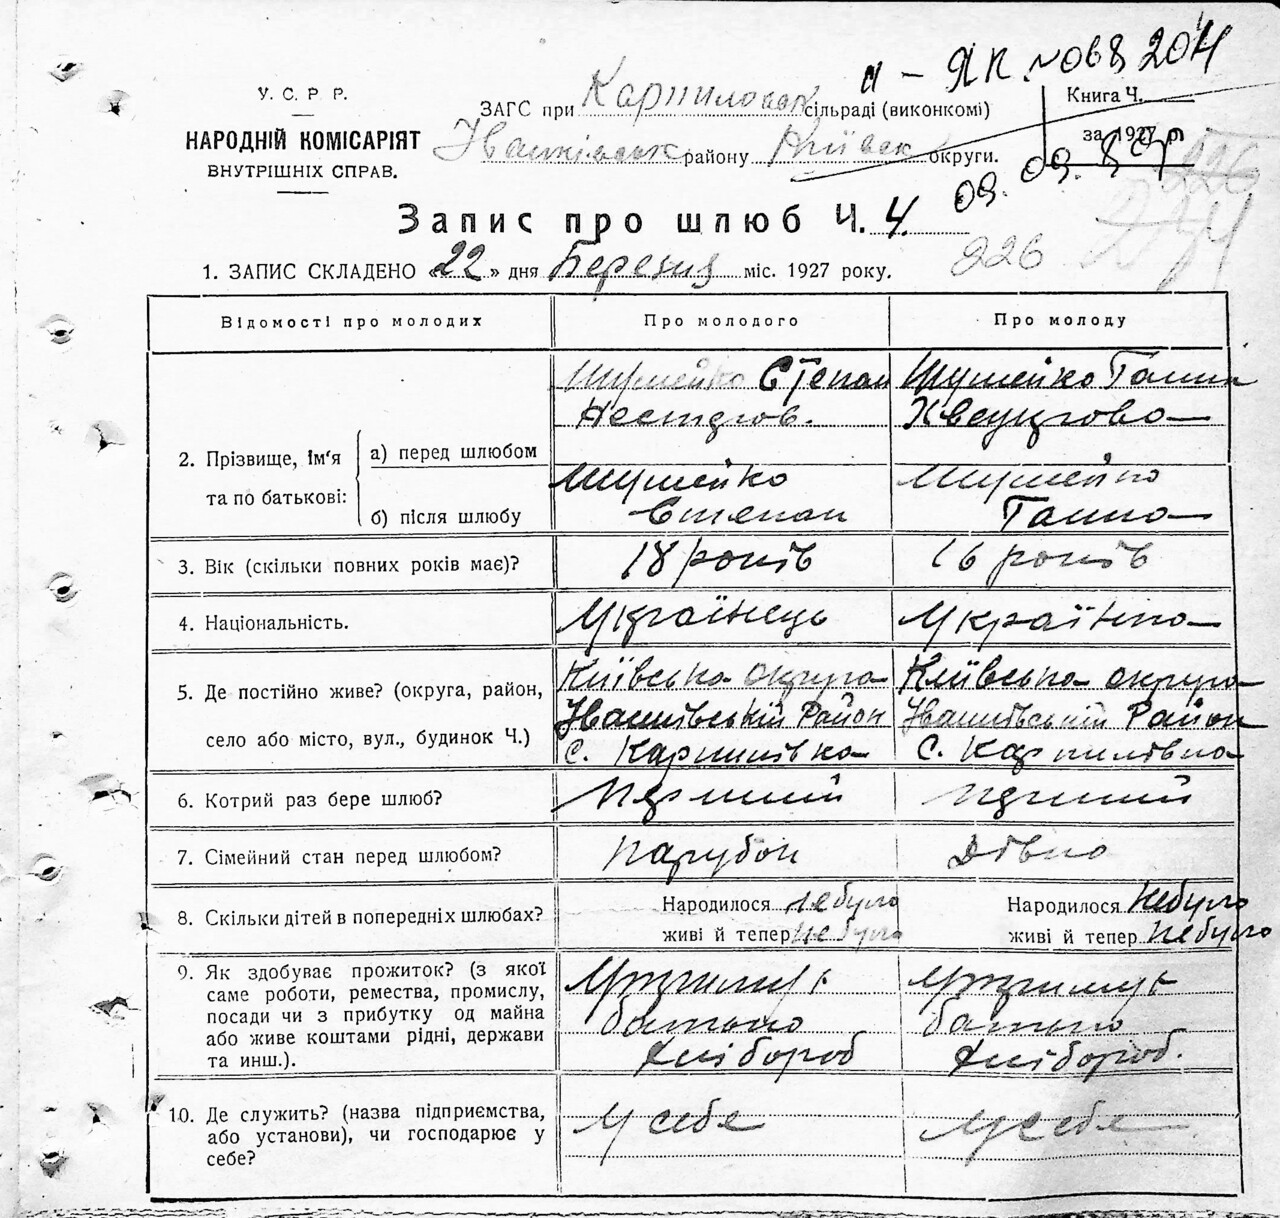 и – ЯК №068204
У. С. Р. Р.
НАРОДНІЙ КОМІСАРІЯТ
ВНУТРІШНІХ СПРАВ.
ЗАГС при Карпиловск сільраді (виконкомі)
Іванківськ району Київск округи.
Книга Ч.
за 1927 р.
09. 09. 87
226
Запис про шлюб Ч. 4.
1. ЗАПИС СКЛАДЕНО «22» дня Березня міс. 1927 року.
226 274
Відомості про молодих Про молодого Про молоду
2. Прізвище, ім'я та по батькові:
а) перед шлюбом
Шумейко Степан Шумейко Ганна
Нестеров.
б) після шлюбу
Шумейко Шумейко
Степан Ганна
3. Вік (скільки повних років має)? 18 років 16 років
4. Національність. Українець Українка
5. Де постійно живе? (округа, район, село або місто, вул., будинок Ч.)
Київська округа Київська округа
Іванківській Район Іванківській Район
С. Карпилівка С. Карпилівка
6. Котрий раз бере шлюб? Перший перший
7. Сімейний стан перед шлюбом? Парубок Дівка
8. Скільки дітей в попередніх шлюбах? Народилося небуло Народилося Небуло
живі й тепер небуло живі й тепер небуло
9. Як здобуває прожиток? (з якої
саме роботи, ремества, промислу,
посади чи з прибутку од майна
або живе коштами рідні, держави
та инш.).
Утримує Утримує
батько батько
хлібороб хлібороб.
10. Де служить? (назва підприємства,
або установи), чи господарює у
себе?
У себе У себе